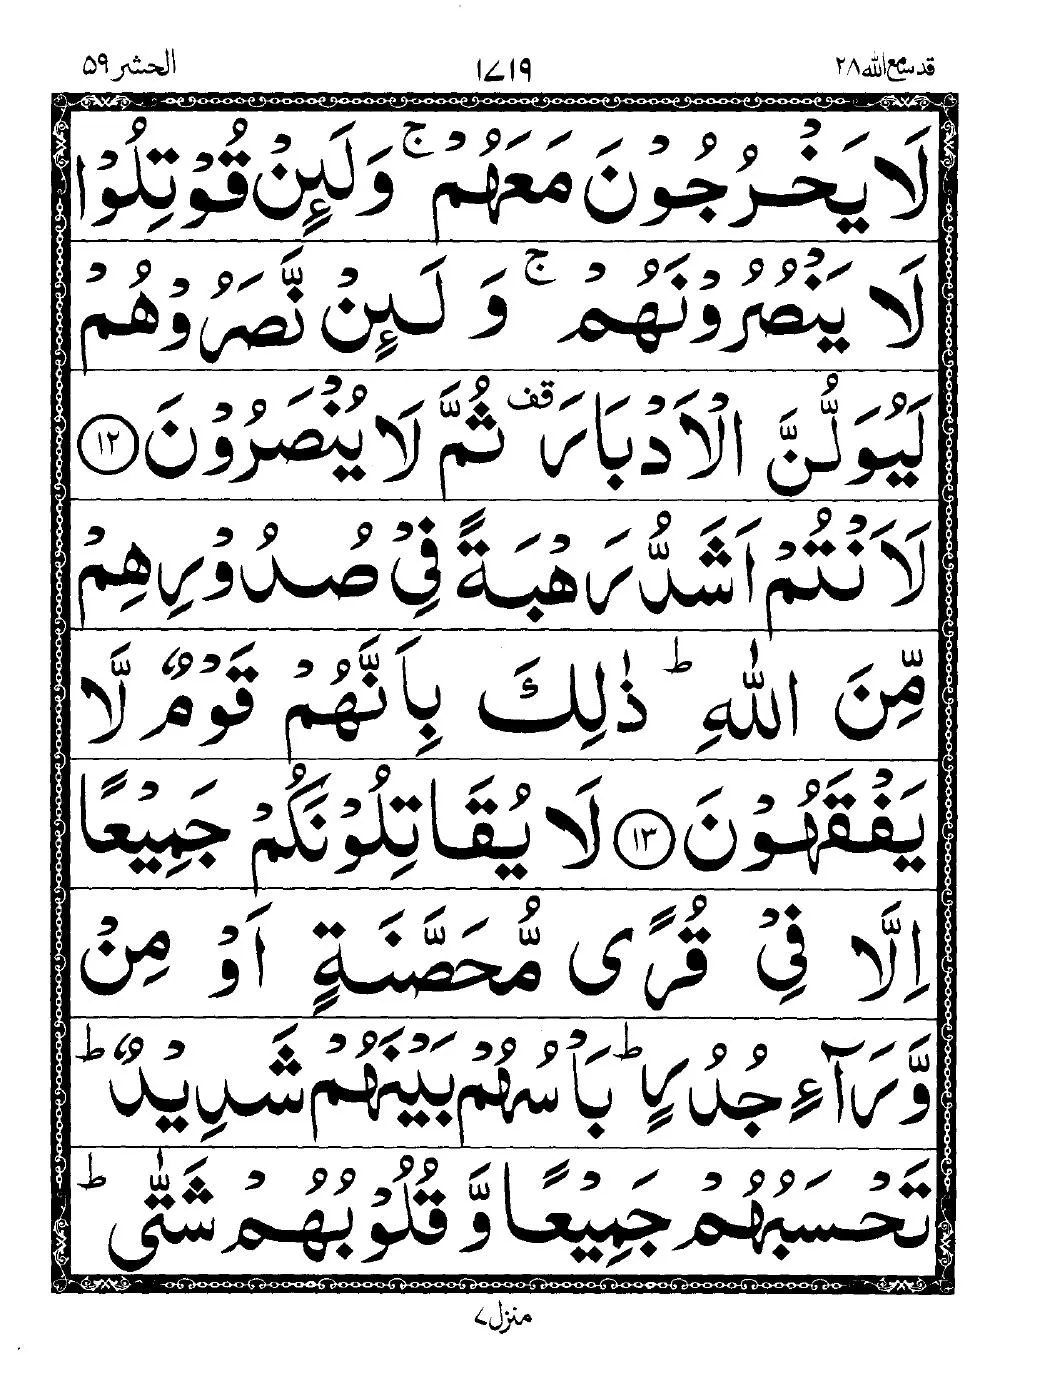 قد سمع الله ۲۸
۱۷۱۹
الحشر ۵۹
لَا يَخْرُجُوْنَ مَعَهُمْ ۚ وَلَىِٕنْ قُوْتِلُوْا
لَا يَنْصُرُوْنَهُمْ ۚ وَلَىِٕنْ نَّصَرُوْهُمْ
لَيُوَلُّنَّ الْاَدْبَارَ ࣞ ثُمَّ لَا يُنْصَرُوْنَ ۝۱۲
لَاَنْتُمْ اَشَدُّ رَهْبَةً فِيْ صُدُوْرِهِمْ
مِّنَ اللّٰهِ ؕ ذٰلِكَ بِاَنَّهُمْ قَوْمٌ لَّا
يَفْقَهُوْنَ ۝۱۳ لَا يُقَاتِلُوْنَكُمْ جَمِيْعًا
اِلَّا فِيْ قُرًى مُّحَصَّنَةٍ اَوْ مِنْ
وَّرَآءِ جُدُرٍ ؕ بَاْسُهُمْ بَيْنَهُمْ شَدِيْدٌ ؕ
تَحْسَبُهُمْ جَمِيْعًا وَّ قُلُوْبُهُمْ شَتّٰى ؕ
منزل ۷